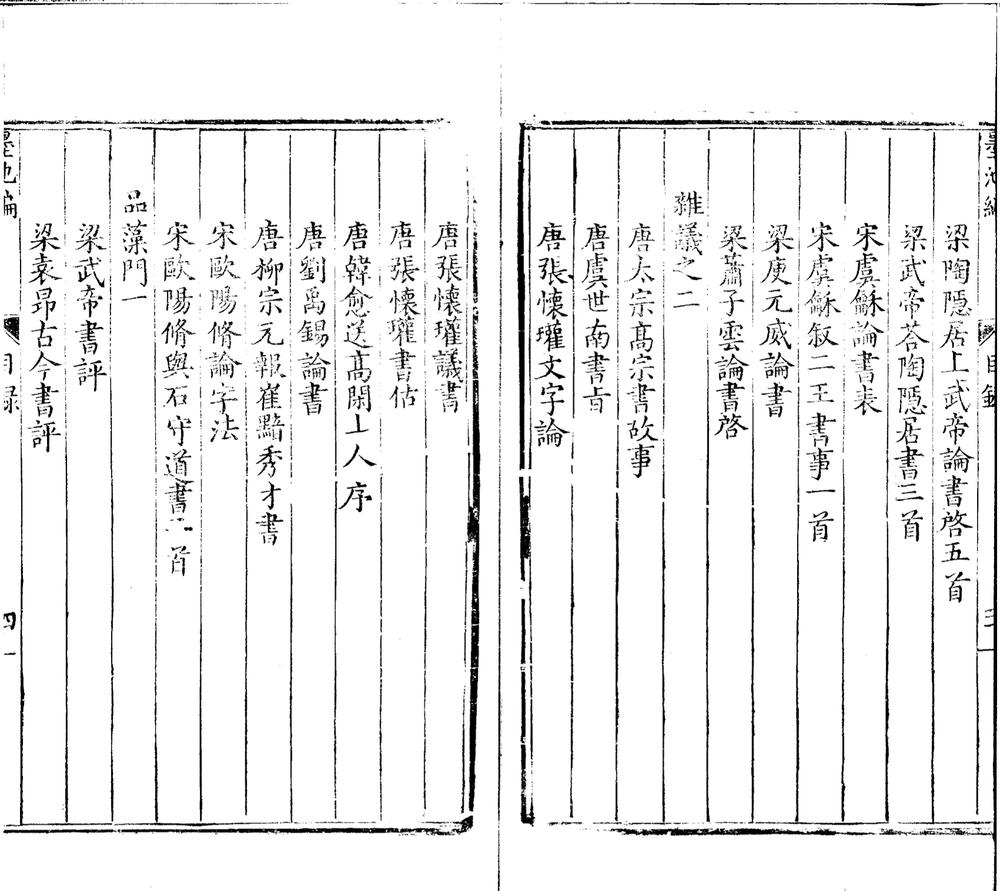 墨池編
目錄
三
梁陶隱居上武帝論書啓五首
梁武帝荅陶隱居書三首
宋虞龢論書表
宋虞龢叙二王書事一首
梁庾元威論書
梁蕭子雲論書啓
雜議之二
唐太宗髙宗書故事
唐虞世南書㫖
唐張懷瓘文字論
唐張懷瓘議書
唐張懷瓘書估
唐韓愈送髙閑上人序
唐劉禹錫論書
唐柳宗元報崔黯秀才書
宋歐陽脩論字法
宋歐陽脩與石守道書二首
品藻門一
梁武帝書評
梁袁昂古今書評
墨池編
目録
四